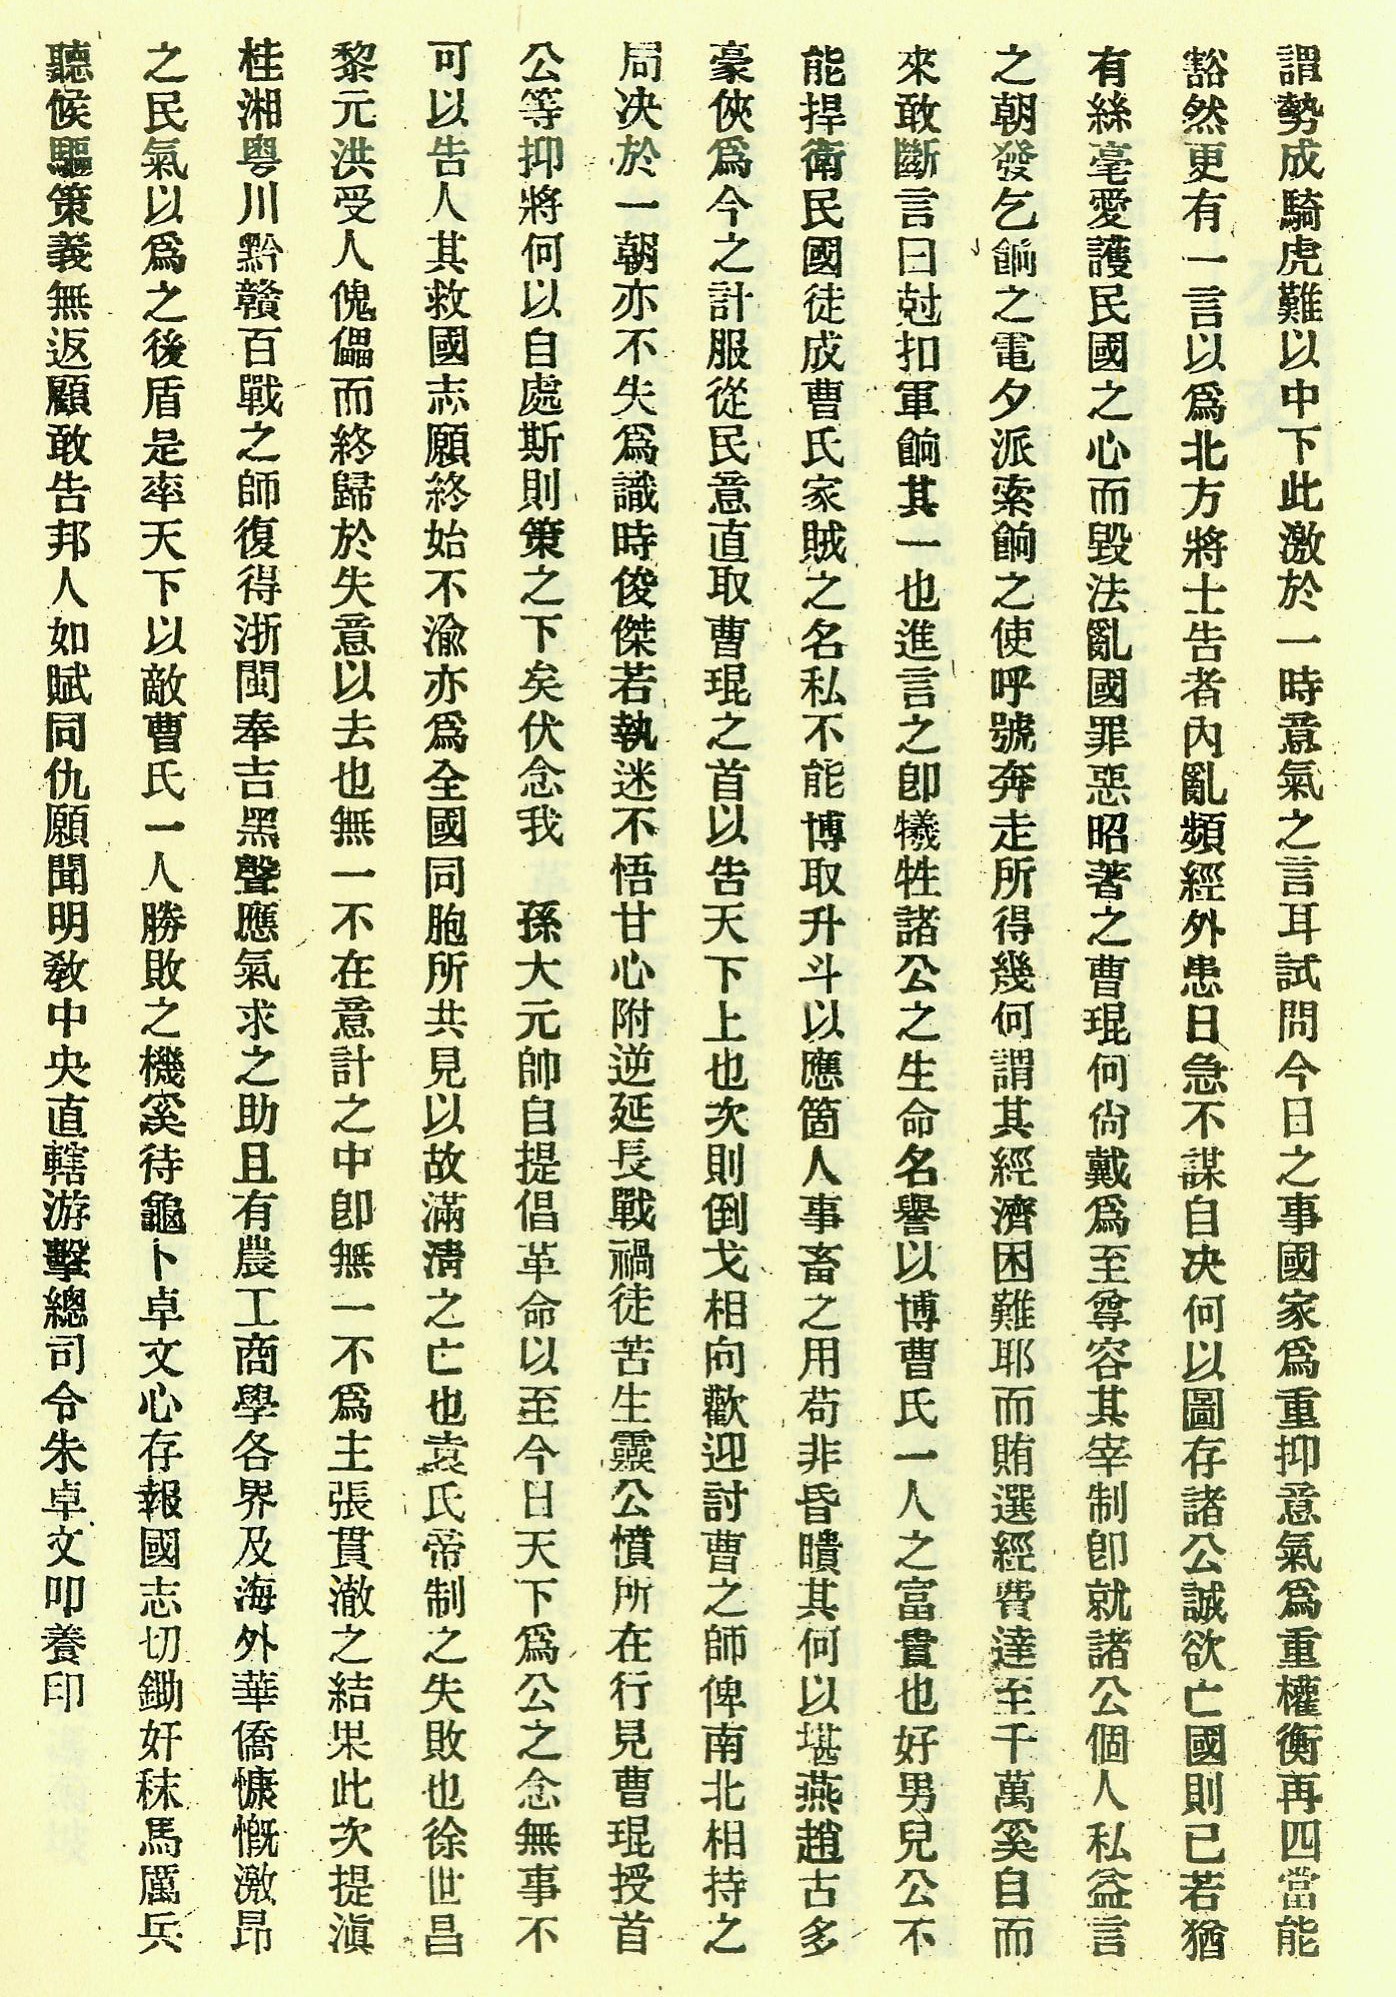 謂勢成騎虎難以中下此激於一時意氣之言耳試問今日之事國家爲重抑意氣爲重權衡再四當能
豁然更有一言以爲北方將士告者內亂頻經外患日急不謀自决何以圖存諸公誠欲亡國則已若猶
有絲毫愛護民國之心而毀法亂國罪惡昭著之曹琨何尙戴爲至尊容其宰制卽就諸公個人私益言
之朝發乞餉之電夕派索餉之使呼號奔走所得幾何謂其經濟困難耶而賄選經費達至千萬奚自而
來敢斷言曰尅扣軍餉其一也進言之卽犧牲諸公之生命名譽以博曹氏一人之富貴也好男兒公不
能捍衛民國徒成曹氏家賊之名私不能博取升斗以應箇人事畜之用苟非昏瞶其何以堪燕趙古多
豪俠爲今之計服從民意直取曹琨之首以告天下上也次則倒戈相向歡迎討曹之師俾南北相持之
局决於一朝亦不失爲識時俊傑若執迷不悟甘心附逆延長戰禍徒苦生靈公憤所在行見曹琨授首
公等抑將何以自處斯則策之下矣伏念我　孫大元帥自提倡革命以至今日天下爲公之念無事不
可以告人其救國志願終始不渝亦爲全國同胞所共見以故滿淸之亡也袁氏帝制之失敗也徐世昌
黎元洪受人傀儡而終歸於失意以去也無一不在意計之中卽無一不爲主張貫澈之結果此次提滇
桂湘粵川黔贛百戰之師復得浙閩奉吉黑聲應氣求之助且有農工商學各界及海外華僑慷慨激昂
之民氣以爲之後盾是率天下以敵曹氏一人勝敗之機奚待龜卜卓文心存報國志切鋤奸秣馬厲兵
聽候驅策義無返顧敢告邦人如賦同仇願聞明敎中央直轄游擊總司令朱卓文叩養印